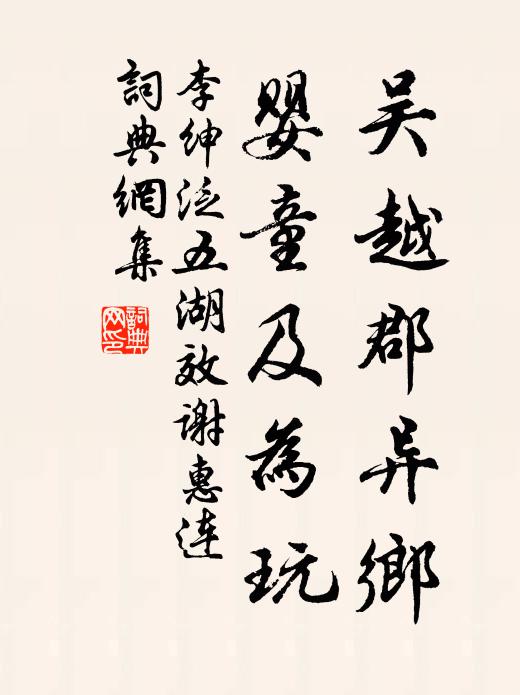 吴越郡异鄉
婴童及為玩
李绅泛五湖效谢惠连
詞典網集
詞典网印